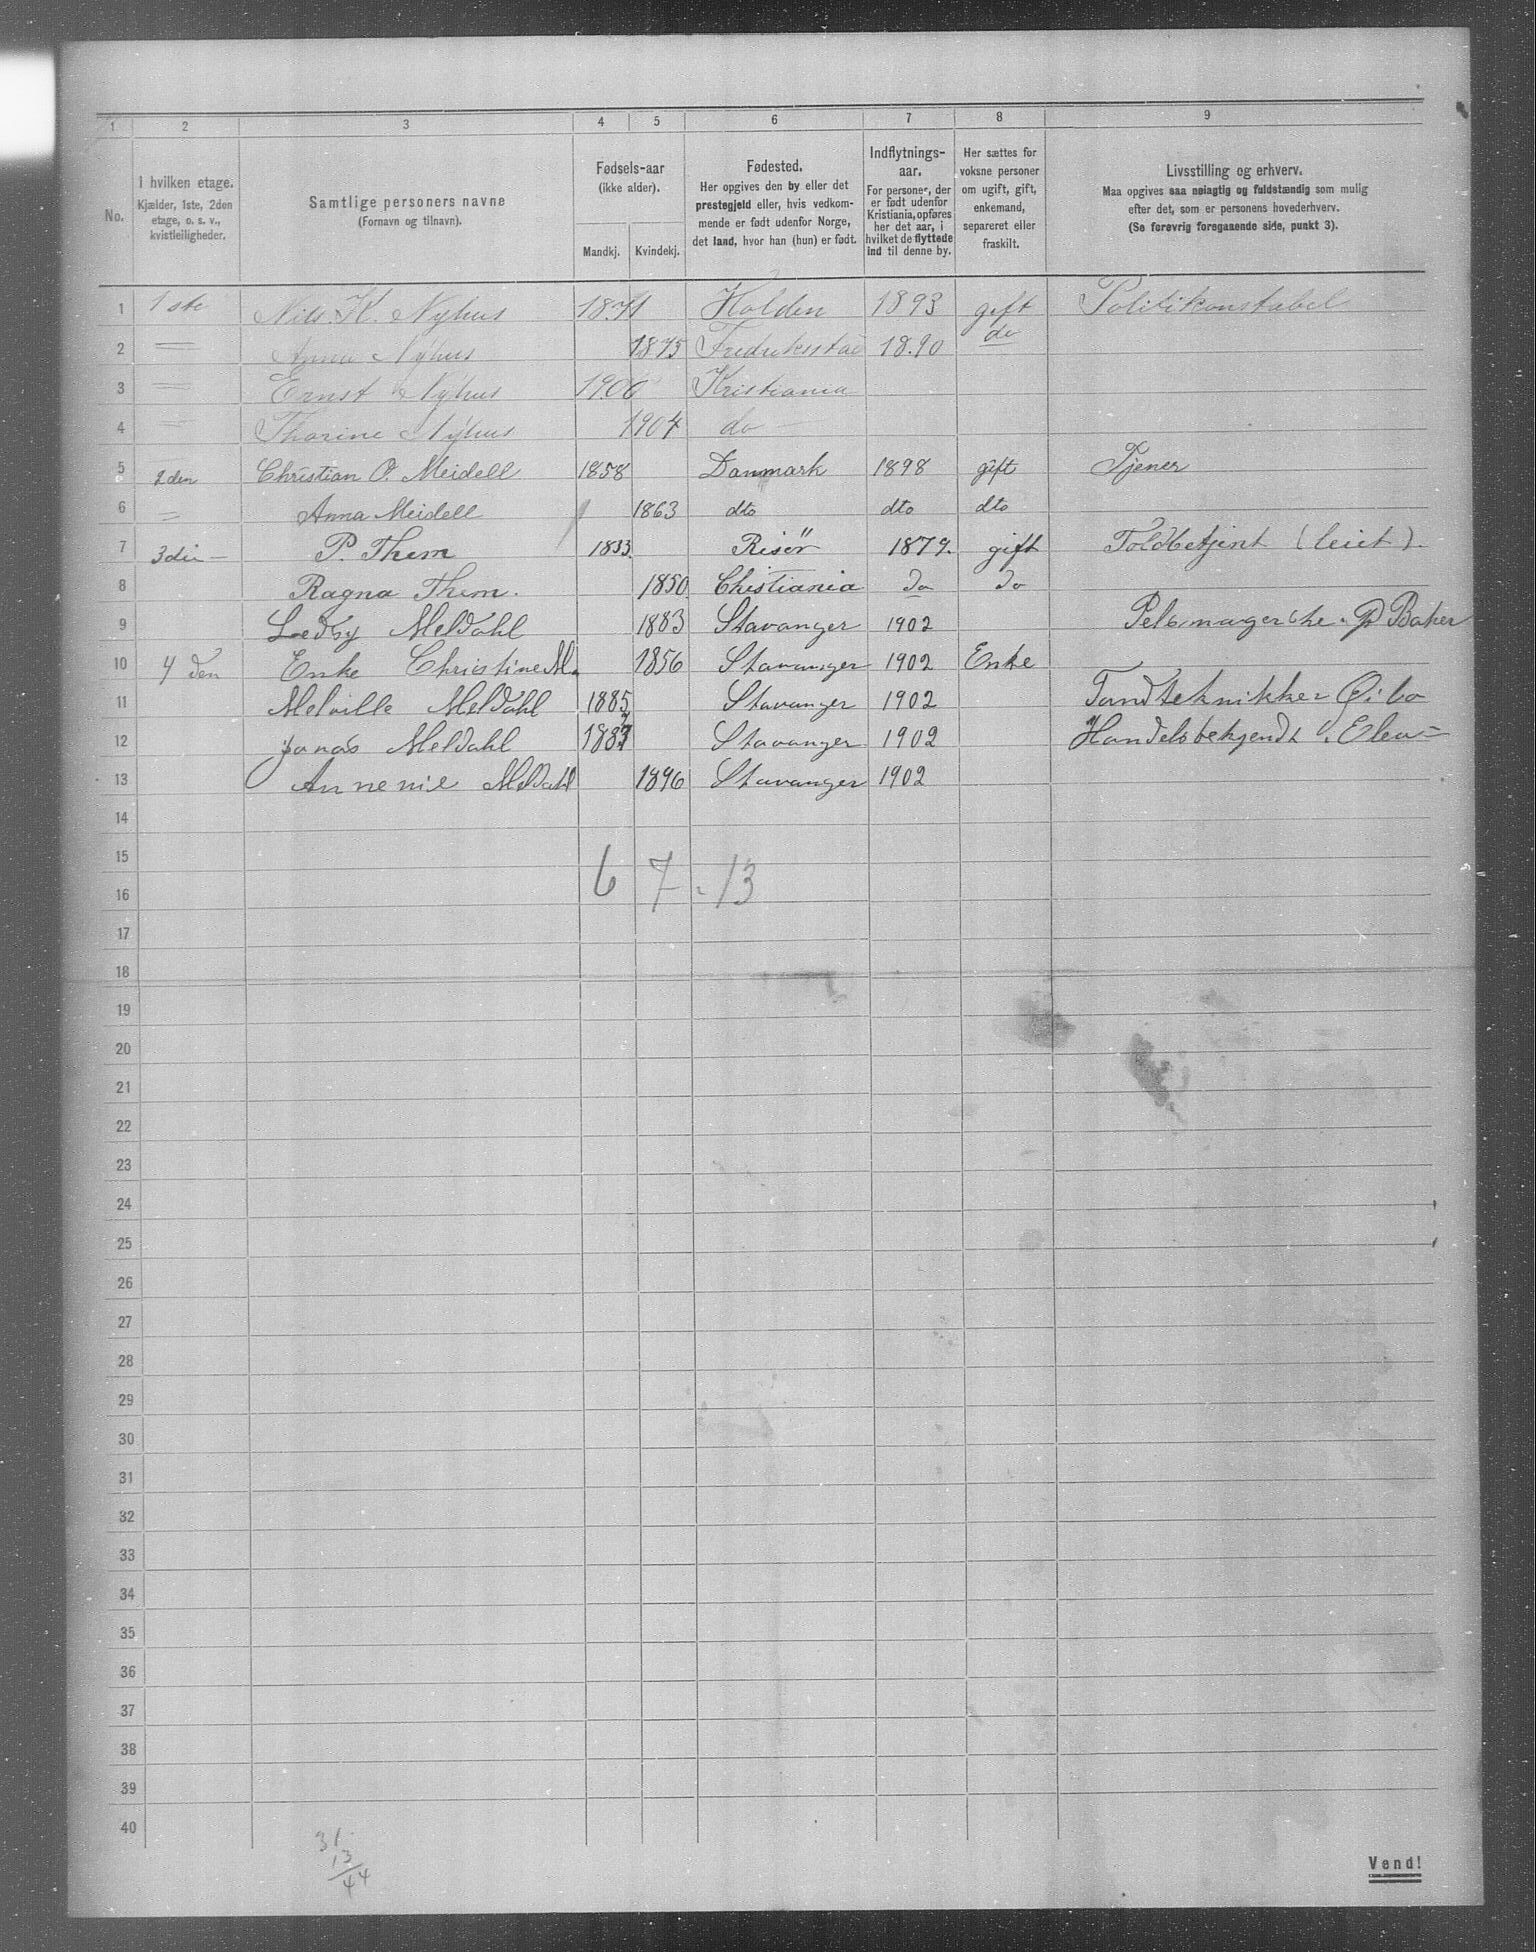 1 2 3 4 5 6 7 8 9
No. I hvilken etage. Kjælder, 1ste, 2den etage, o. s. v., kvistleiligheder. Samtlige personers navne (Fornavn og tilnavn). Fødsels-aar (ikke alder). Mandkj. Kvindekj. Fødested. Her opgives den by eller det prestegjeld eller, hvis vedkommende er født udenfor Norge, det land, hvor han (hun) er født. Indflytnings-aar. For personer, der er født udenfor Kristiania, opføres her det aar, i hvilket de flyttede ind til denne by. Her sættes for voksne personer om ugift, gift, enkemand, separeret eller fraskilt. Livsstilling og erhverv. Maa opgives saa nøiagtig og fuldstændig som mulig efter det, som er personens hovederhverv. (Se forøvrig foregaaende side, punkt 3).
1 1ste Nils K. Nyhus 1871 Holden 1893 gift Politikonstabel
2 — Anna Nyhus 1875 Fredriksstad 1890 do
3 — Ernst Nyhus 1900 Kristiania
4 — Thorine Nyhus 1904 do
5 2den Christian O. Meidell 1858 Danmark 1898 gift Tjener
6 — Anna Meidell 1863 dto dto dto
7 3die — P. Them 1833 Risör 1879. gift Toldbetjent
8 Ragna Them. 1850 Christiania do do
9 Meldahl 1883 Stavanger 1902
10 4 den Enke Christine M. 1856 Stavanger 1902 Enke
11 Melville Meldahl 1885 Stavanger 1902 Tandtekniker
12 Jonas Meldahl 1887 Stavanger 1902
13 Annenie Meldahl 1896 Stavanger 1902
14
15
16 6 7 - 13
17
18
19
20
21
22
23
24
25
26
27
28
29
30
31
32
33
34
35
36
37
38
39
40
31
13
44
Vend!